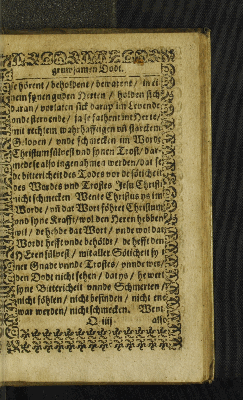 gruwsamen Dodt.
se hörent / beholdent / bewarent / in ei
nem fynen guden Herten / holden sick
daran / vorlaten sick darup im Levende
unde stervende / ja se fathent im Herte /
mit rechtem warhafftigen vñ starckem
Geloven / vnde schmecken im Worde
Christum sülvest vnd synen Trost / dar
mede se also ingenahmen werden / dat se
de bittericheit des Todes vor de sötichett
des Wordes vnd Trostes Jesu Christi
nicht schmecken. Wente Christus ys im
Worde / vñ dat Wort föhret Christum
vnd syne Krafft / wol den Heren hebben
wil / de hebbe dat Wort / vnde wol dat
Wordt hefft vnde behöldt / de hefft den
HEren sülvest / mit aller Söticheit sy
ner Gnade vnnde Trostes / vnnde wer
den Dodt nicht sehen / dat ys / he wert
syne Bittericheit vnnde Schmerten
nicht föhlen / nicht befinden / nicht en
war werden / nicht schmecken. Went
Q iiij also